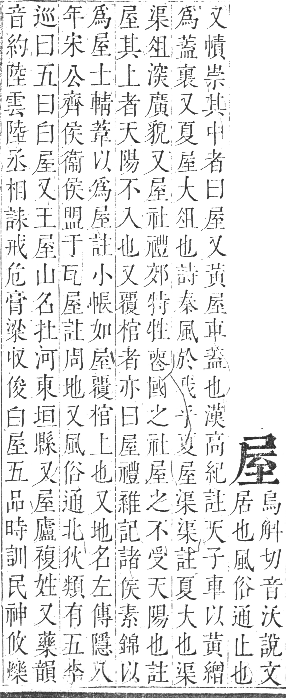 屋
烏斛切音沃說文
居也風俗通止也
又幘崇其中者曰屋又黃屋車蓋也漢高紀註天子車以黃繒
爲蓋裏又夏屋大俎也詩秦風於我乎夏屋渠渠註夏大也渠
渠俎深廣貌又屋社禮郊特牲喪國之社屋之不受天陽也註
屋其上者天陽不入也又覆棺者亦曰屋禮雜記諸侯素錦以
爲屋士輤葦以爲屋註小帳如屋覆棺上也又地名左傳隱八
年宋公齊侯衞侯盟于瓦屋註周地又風俗通北狄類有五李
巡曰五曰白屋又王屋山名在河東垣縣又屋廬複姓又藥韻
音約陸雲陸丞相誄戒危膏梁收俊白屋五品時訓民神攸爍